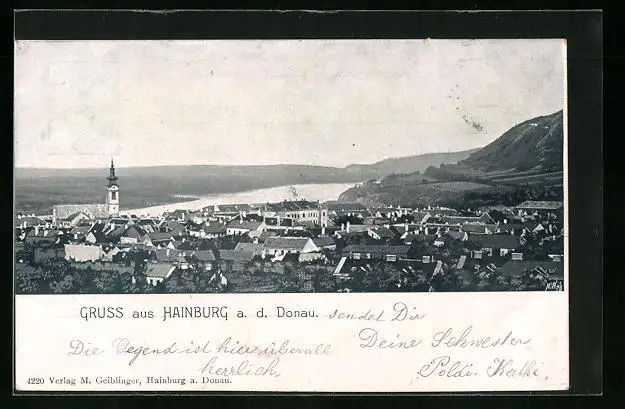 GRUSS aus HAINBURG a. d. Donau. sendet Dir
Die Gegend ist hier überall
herrlich.
Deine Schwester
Poldi. Kathi.
4220 Verlag M. Geiblinger, Hainburg a. Donau.